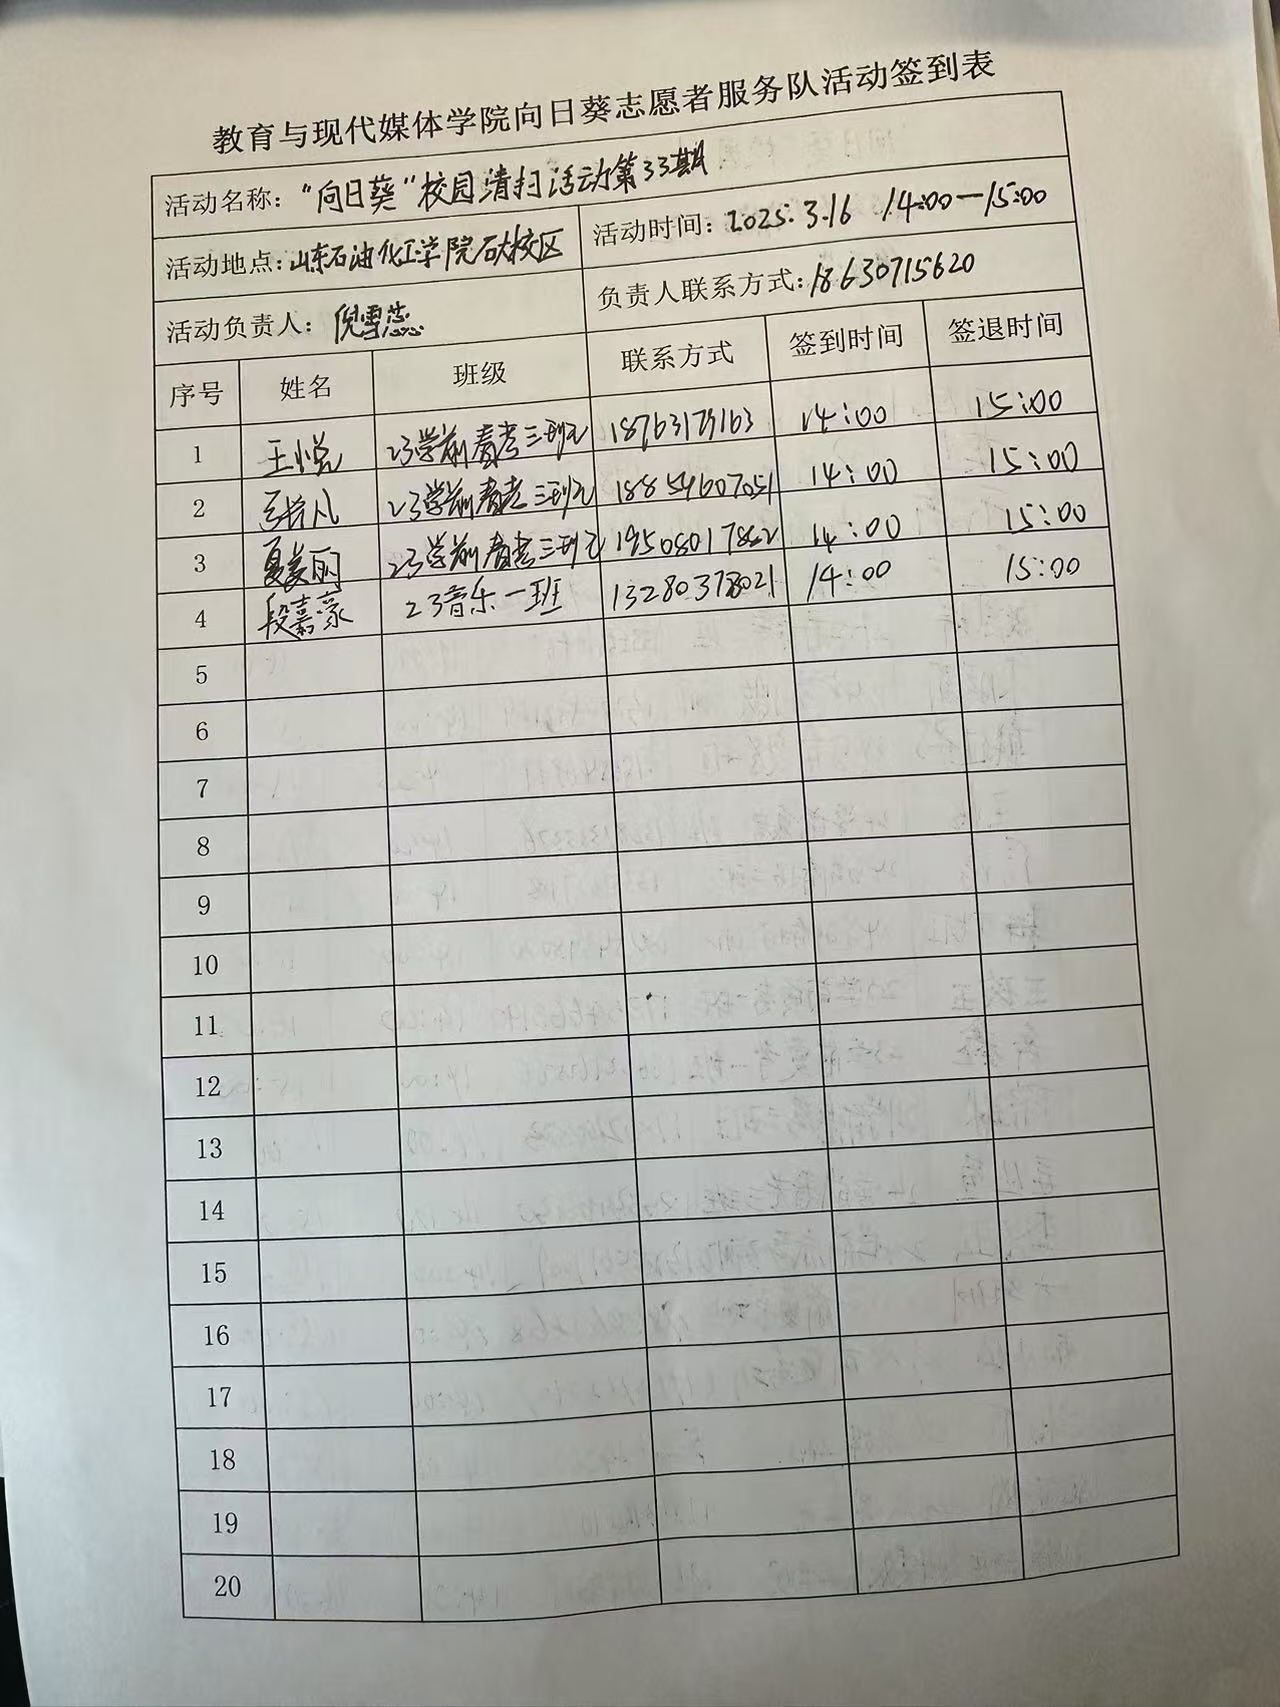 教育与现代媒体学院向日葵志愿者服务队活动签到表
活动名称："向日葵"校园清扫活动第33期
活动地点：山东石油化工学院石大校区 活动时间：2025.3.16 14:00—15:00
活动负责人：倪雪蕊 负责人联系方式：18630715620
序号 姓名 班级 联系方式 签到时间 签退时间
1 王悦 23学前春考三班 18763179163 14:00 15:00
2 凡 23学前春考三班 18859607051 14:00 15:00
3 夏美丽 23学前春考三班 19508017862 14:00 15:00
4 段嘉豪 23音乐一班 13280378021 14:00 15:00
5
6
7
8
9
10
11
12
13
14
15
16
17
18
19
20